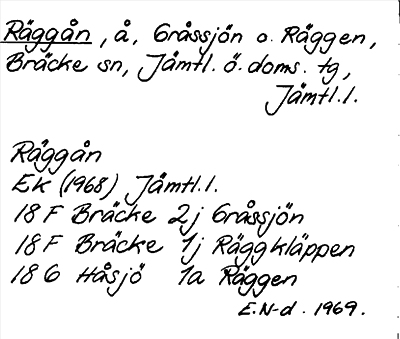 Räggån, å, Gråssjön o. Räggen,
Bräcke sn, Jämtl. ö. doms. tg,
Jämtl. l.
Räggån
EK (1968) Jämtl. l.
18 F Bräcke 2j Gråssjön
18 F Bräcke 1j Räggkläppen
18 G Håsjö 1a Räggen
E. N-d. 1969.